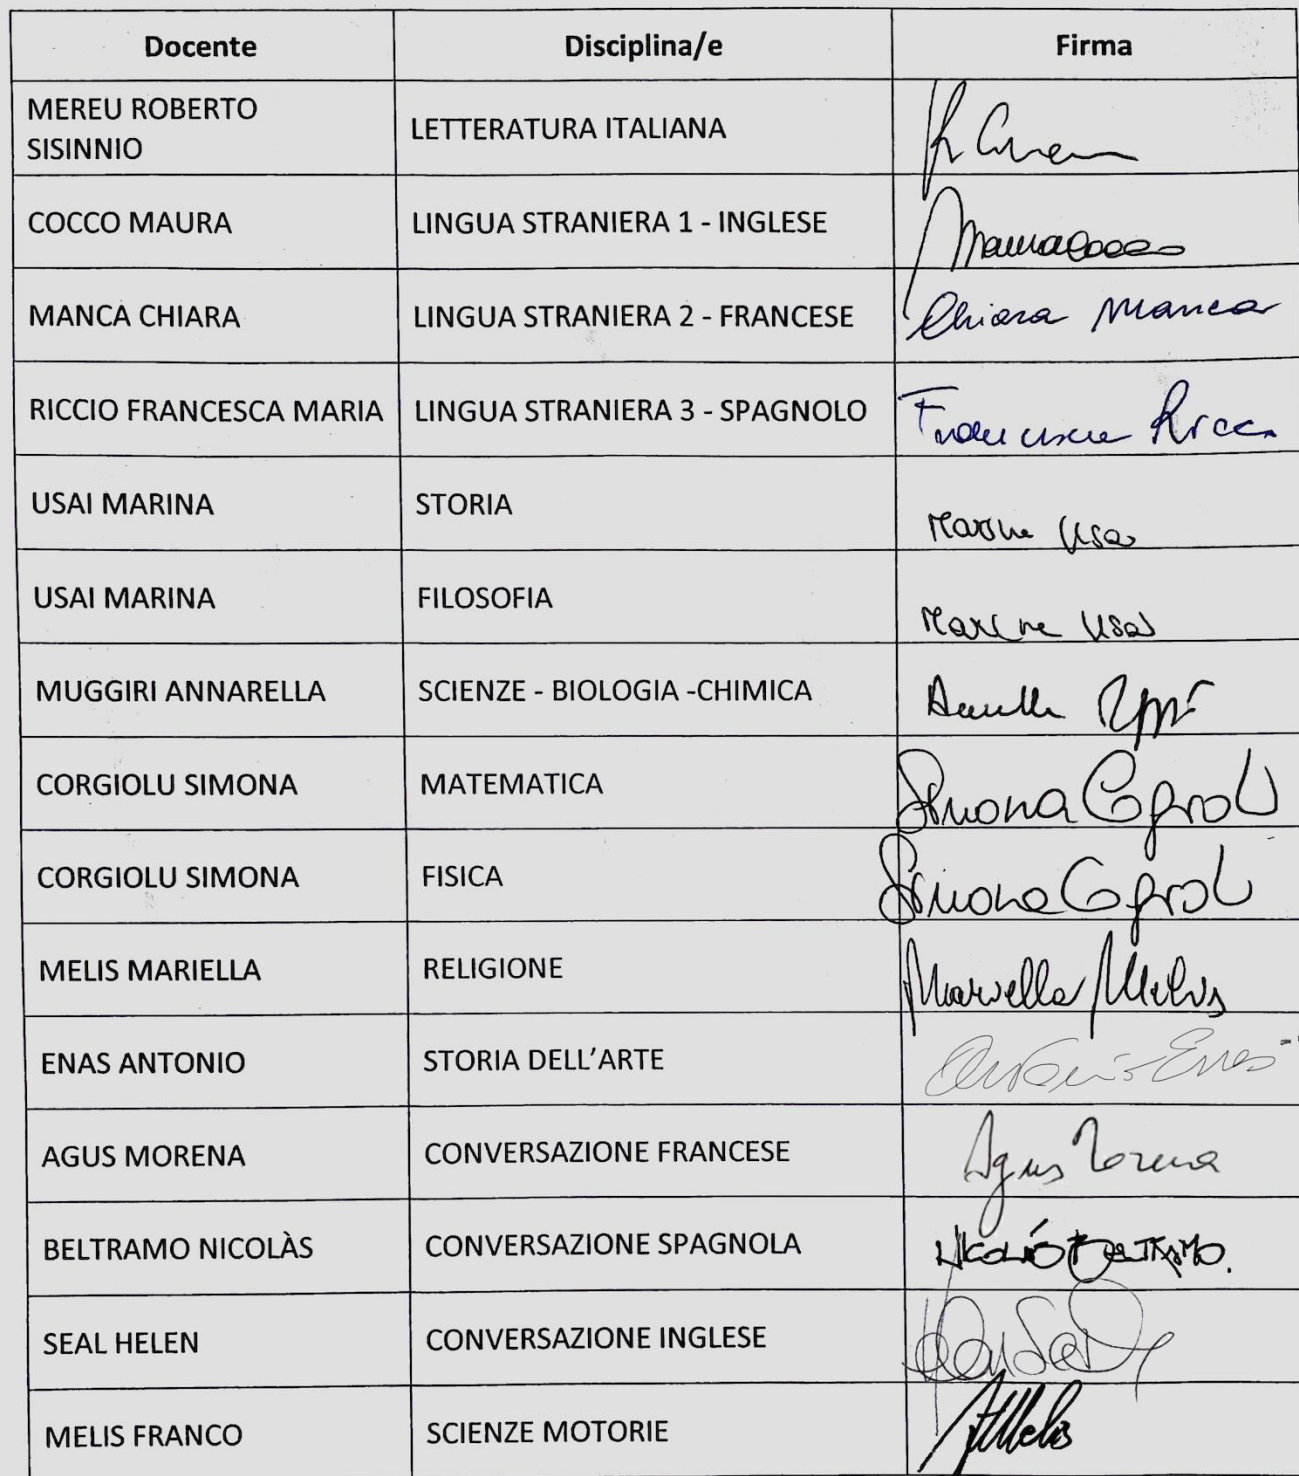 Docente Disciplina/e Firma
MEREU ROBERTO
SISINNIO
LETTERATURA ITALIANA
COCCO MAURA LINGUA STRANIERA 1 - INGLESE Maura Cocco
MANCA CHIARA LINGUA STRANIERA 2 - FRANCESE Chiara Manca
RICCIO FRANCESCA MARIA LINGUA STRANIERA 3 - SPAGNOLO Francesca Ricc
USAI MARINA STORIA Marina Usai
USAI MARINA FILOSOFIA Marina Usai
MUGGIRI ANNARELLA SCIENZE - BIOLOGIA -CHIMICA
CORGIOLU SIMONA MATEMATICA Simona
CORGIOLU SIMONA FISICA Simona
MELIS MARIELLA RELIGIONE Mariella Melis
ENAS ANTONIO STORIA DELL'ARTE Antonio Enas
AGUS MORENA CONVERSAZIONE FRANCESE Agus Morena
BELTRAMO NICOLÀS CONVERSAZIONE SPAGNOLA NICOLÁS BELTRAMO.
SEAL HELEN CONVERSAZIONE INGLESE
MELIS FRANCO SCIENZE MOTORIE F Melis